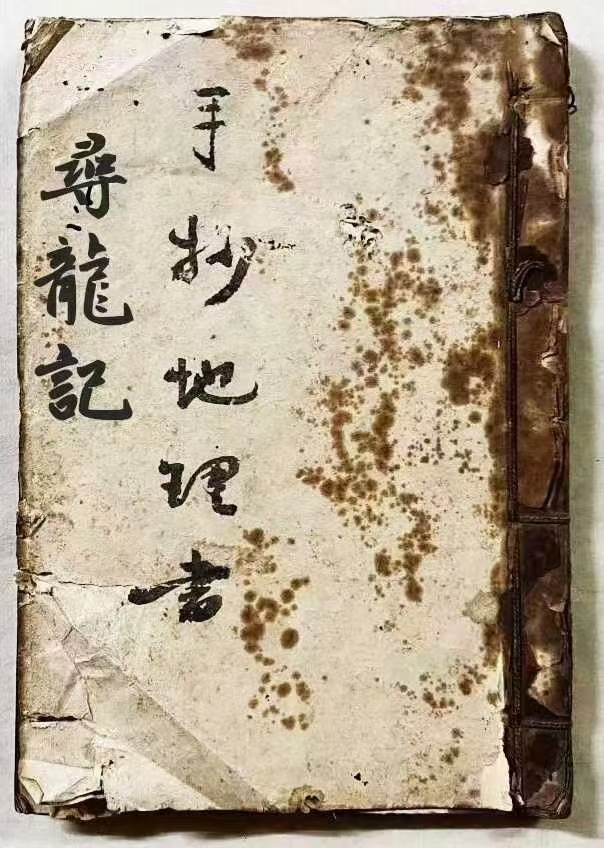 手抄地理書
尋龍記